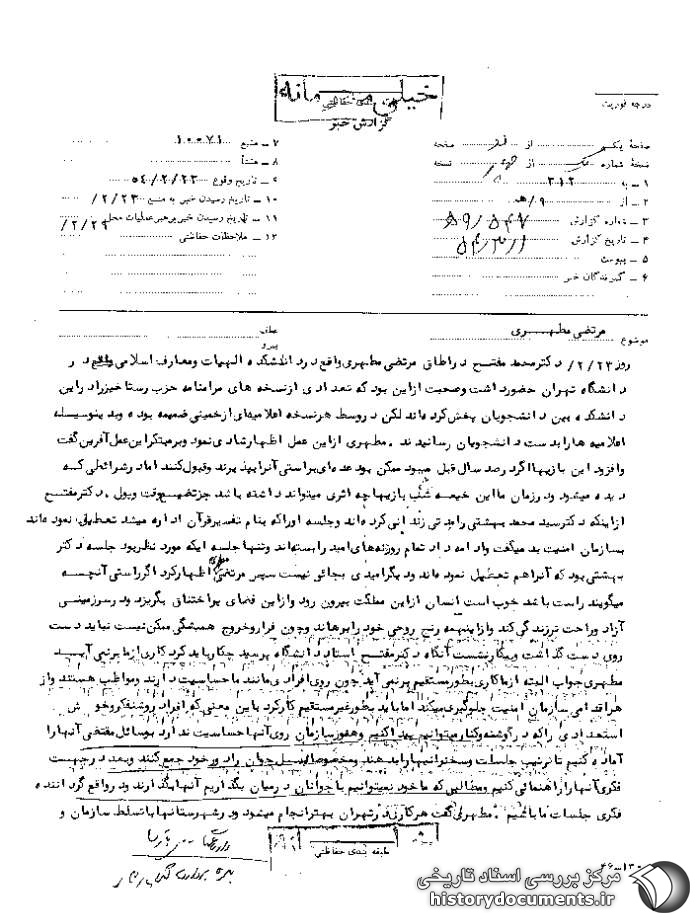 خیلی محرمانه
طبقه بندی حفاظتی
گزارش خبر
درجه فوریت
صفحه یکم از دو صفحه
نسخه شماره یک از نسخه
۱ ـ به ۳۱۲
۲ ـ از ۹/ه
۳ ـ شماره گزارش
۴ ـ تاریخ گزارش
۵ ـ پیوست
۶ ـ گیرندگان خبر
۷ ـ منبع ۱۰۰۷۱
۸ ـ منشأ
۹ ـ تاریخ وقوع ۵۴/۲/۲۳
۱۰ ـ تاریخ رسیدن خبر به منبع ۲/۲۳/
۱۱ ـ تاریخ رسیدن خبر برهبر عملیات محلی ۲/۲۹/
۱۲ ـ ملاحظات حفاظتی
موضوع مرتضی مطهری
عطف
پیرو
روز ۲/۲۳/ دکتر محمد مفتح در اطاق مرتضی مطهری واقع در دانشکده الهیات ومعارف اسلامی در
دانشگاه تهران حضور داشت وصحبت از این بود که تعدادی از نسخه های مرامنامه حزب رستاخیز را در این
دانشکده بین دانشجویان پخش کرده اند لکن در وسط هر نسخه اعلامیه ای از خمینی ضمیمه بوده وبدینوسیله
اعلامیه ها را بدست دانشجویان رسانیدند . مطهری از این عمل اظهار شادی نمود وبر مبتکر این عمل آفرین گفت
وافزود این بازیها اگر در صد سال قبل میبود ممکن بود عده ای براستی آنرا بپذیرند وقبول کنند اما در شرائطی که
دیده میشود ودر زمان ما این خیمه شب بازیها چه اثری میتواند داشته باشد جز تضییع وقت وپول . دکتر مفتح
از اینکه دکتر سید محمد بهشتی را مدتی زندانی کرده اند وجلسه او را که بنام تفسیر قرآن اداره میشد تعطیل نموده اند
بسازمان امنیت بد میگفت وادامه داد تمام روزنه های امید را بسته اند وتنها جلسه ایکه مورد نظر بود جلسه دکتر
بهشتی بود که آنرا هم تعطیل نموده اند ودیگر امیدی بجائی نیست سپس مرتضی مطهری اظهار کرد اگر راستی آنچه
میگویند راست باشد خوب است انسان از این مملکت بیرون رود واز این فضای پر اختناق بگریزد ودر سرزمینی
آزاد وراحت تر زندگی کند واز اینهمه رنج روحی خود را برهاند وچون فرار وخروج همیشگی ممکن نیست نباید دست
روی دست گذاشت وبیکار نشست آنگاه دکتر مفتح استاد دانشگاه پرسید چکار باید کرد کاری از ما برنمی آید
مطهری جواب البته از ما کاری بطور مستقیم برنمی آید چون روی افرادی مانند ما حساسیت دارند ومواظب هستند واز
هر اقدامی سازمان امنیت جلوگیری میکند اما باید بطور غیر مستقیم کار کرد باین معنی که افراد روشنفکر وخوش
استعدادی را که در گوشه وکنار میتوانیم پیدا کنیم وهنوز سازمان روی آنها حساسیت ندارد بوسائل مقتضی آنها را
آماده کنیم تا ترتیب جلسات وسخنرانیها را بدهند ومخصوصا نسل جوان را دور خود جمع کنند وبعد در جهت
فکری آنها را راهنمائی کنیم ومطالبی که ما خود نمیتوانیم با جوانان در میان بگذاریم آنها بگذارند ودر واقع گرداننده
فکری جلسات ما باشیم . مطهری گفت هر کاری در تهران بهتر انجام میشود ودر شهرستانها با تسلط سازمان و
طبقه بندی حفاظتی
مرکز بررسی اسناد تاریخی
historydocuments.ir